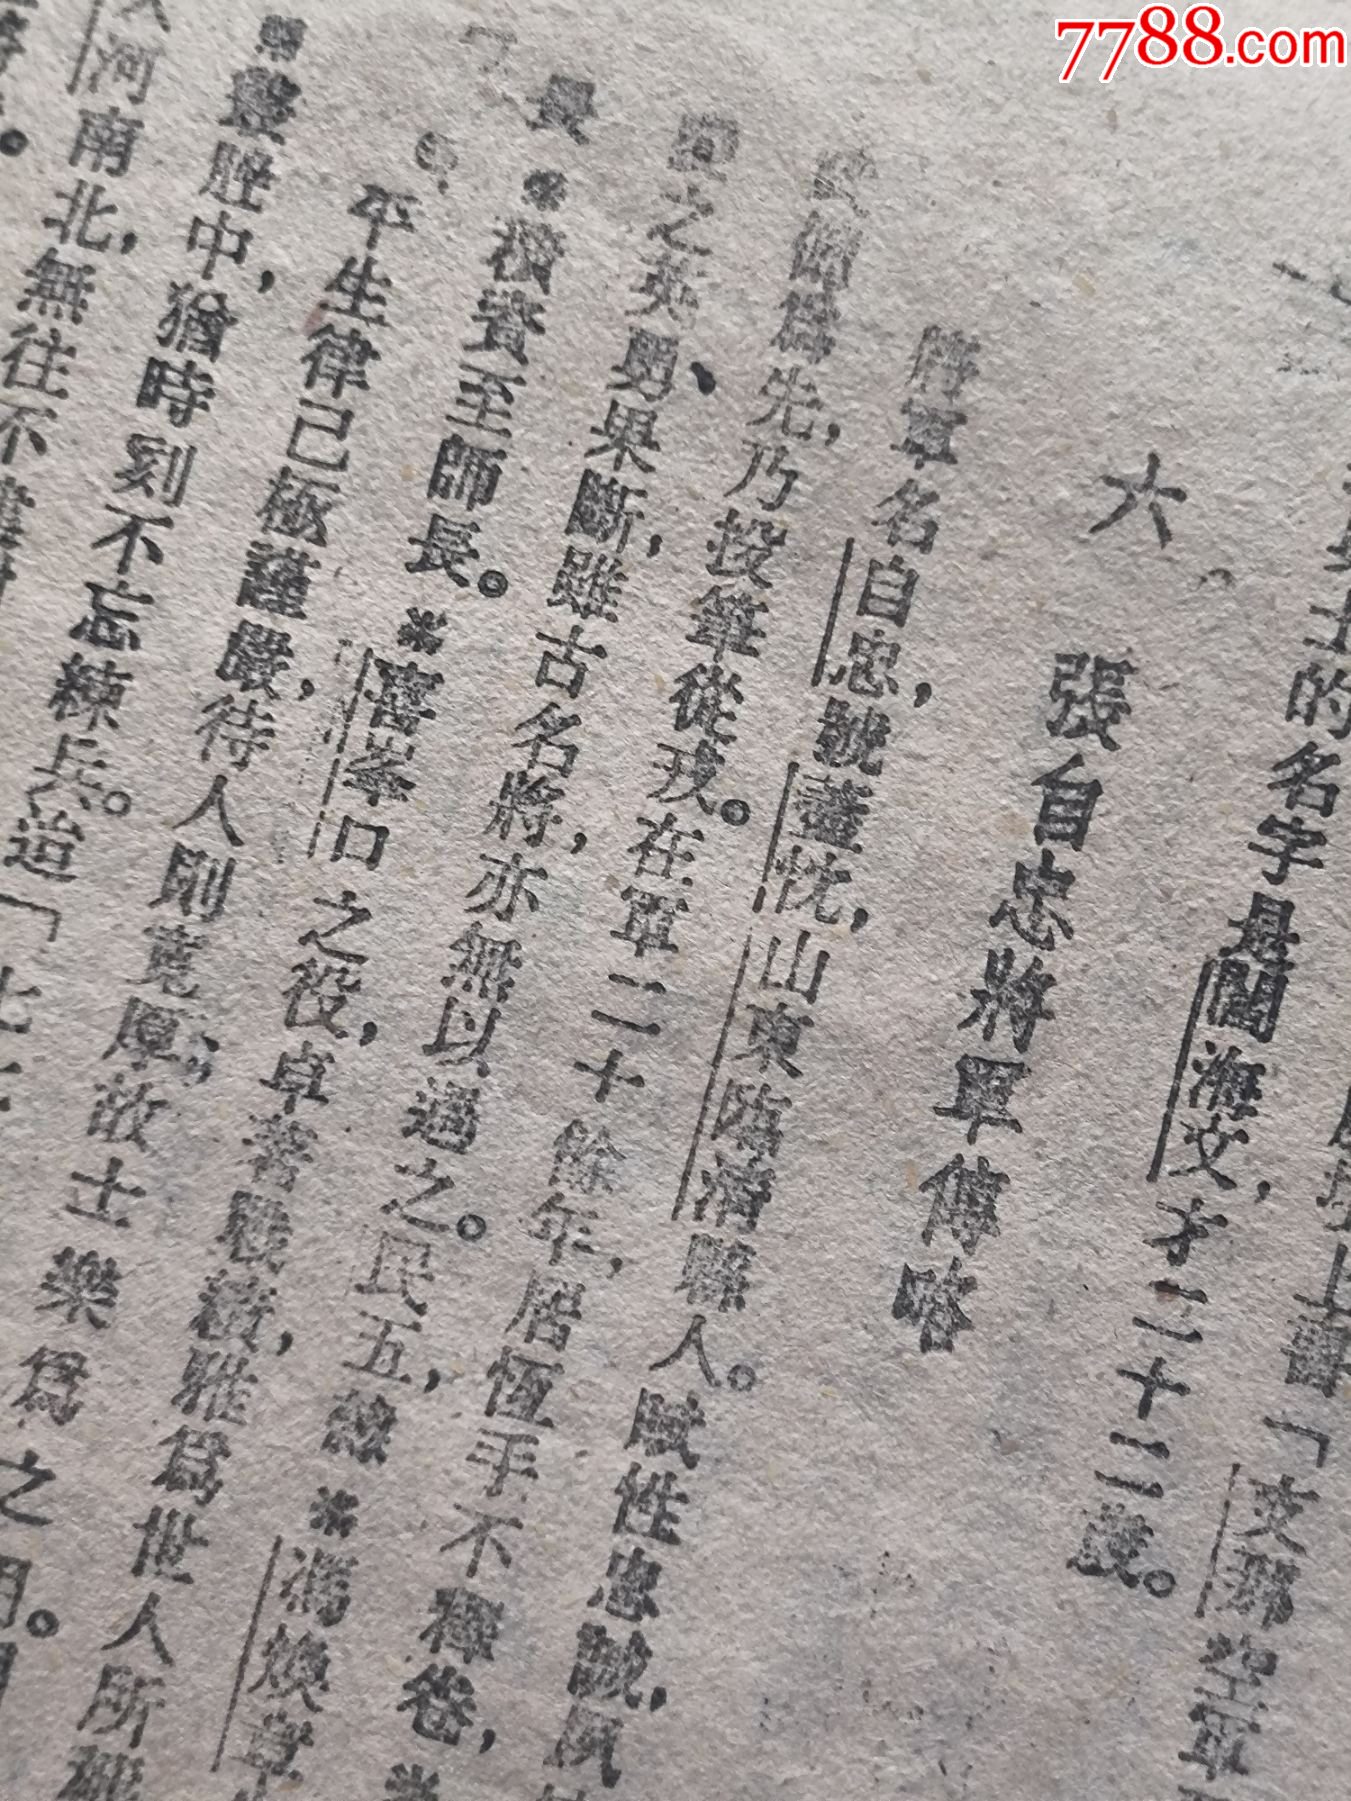 7788.com
士的名字是閻海文，才二十二歲。
上書「支那空軍
六
張自忠將軍傳略
將軍名自忠，號藎忱，山東臨清縣人。賦性忠誠，夙
爲先，乃投筆從戎。在軍二十餘年，居恆手不釋卷，
之英勇、果斷，雖古名將，亦無以過之。民五，隸*馮煥章
*積資至師長。*喜峯口之役，卓著戰績，雅爲世人所
平生律己極謹嚴，待人則寬厚，故士樂爲之用。
中，猶時刻不忘練兵。迨「七七
河南北，無往不